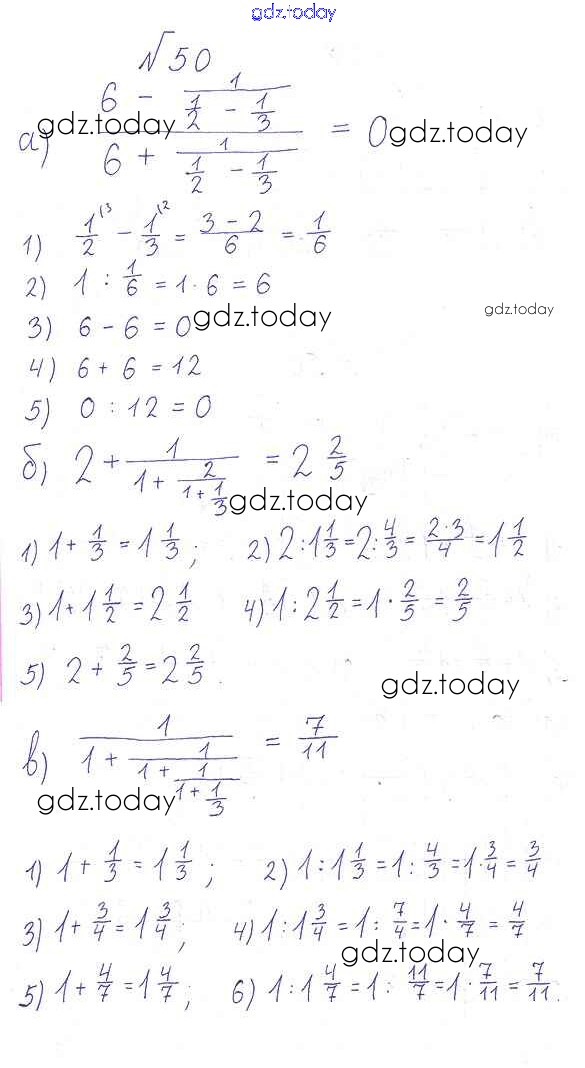 gdz.today
№50
а) (6 - 1/(1/2 - 1/3))/(6 + 1/(1/2 - 1/3)) = 0
gdz.today gdz.today
1) 1/2^(3 - 1/3^(2 = (3 - 2)/6 = 1/6
2) 1 : 1/6 = 1 · 6 = 6
3) 6 - 6 = 0 gdz.today gdz.today
4) 6 + 6 = 12
5) 0 : 12 = 0
б) 2 + 1/(1 + 2/(1 + 1/3)) = 2 2/5
gdz.today
1) 1 + 1/3 = 1 1/3 ; 2) 2 : 1 1/3 = 2 : 4/3 = (2·3)/4 = 1 1/2
3) 1 + 1 1/2 = 2 1/2 4) 1 : 2 1/2 = 1 · 2/5 = 2/5
5) 2 + 2/5 = 2 2/5 .
gdz.today
в) 1/(1 + 1/(1 + 1/(1 + 1/3))) = 7/11
gdz.today
1) 1 + 1/3 = 1 1/3 ; 2) 1 : 1 1/3 = 1 : 4/3 = 1 · 3/4 = 3/4
3) 1 + 3/4 = 1 3/4 ; 4) 1 : 1 3/4 = 1 : 7/4 = 1 · 4/7 = 4/7
gdz.today
5) 1 + 4/7 = 1 4/7 ; 6) 1 : 1 4/7 = 1 : 11/7 = 1 · 7/11 = 7/11 .